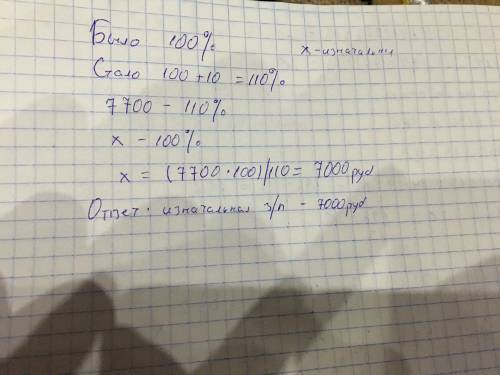 Было 100%
x - изначально
Стало 100 + 10 = 110%
7700 - 110%
x - 100%
x = (7700 · 100)/110 = 7000 руб
Ответ: изначальная з/п - 7000 руб